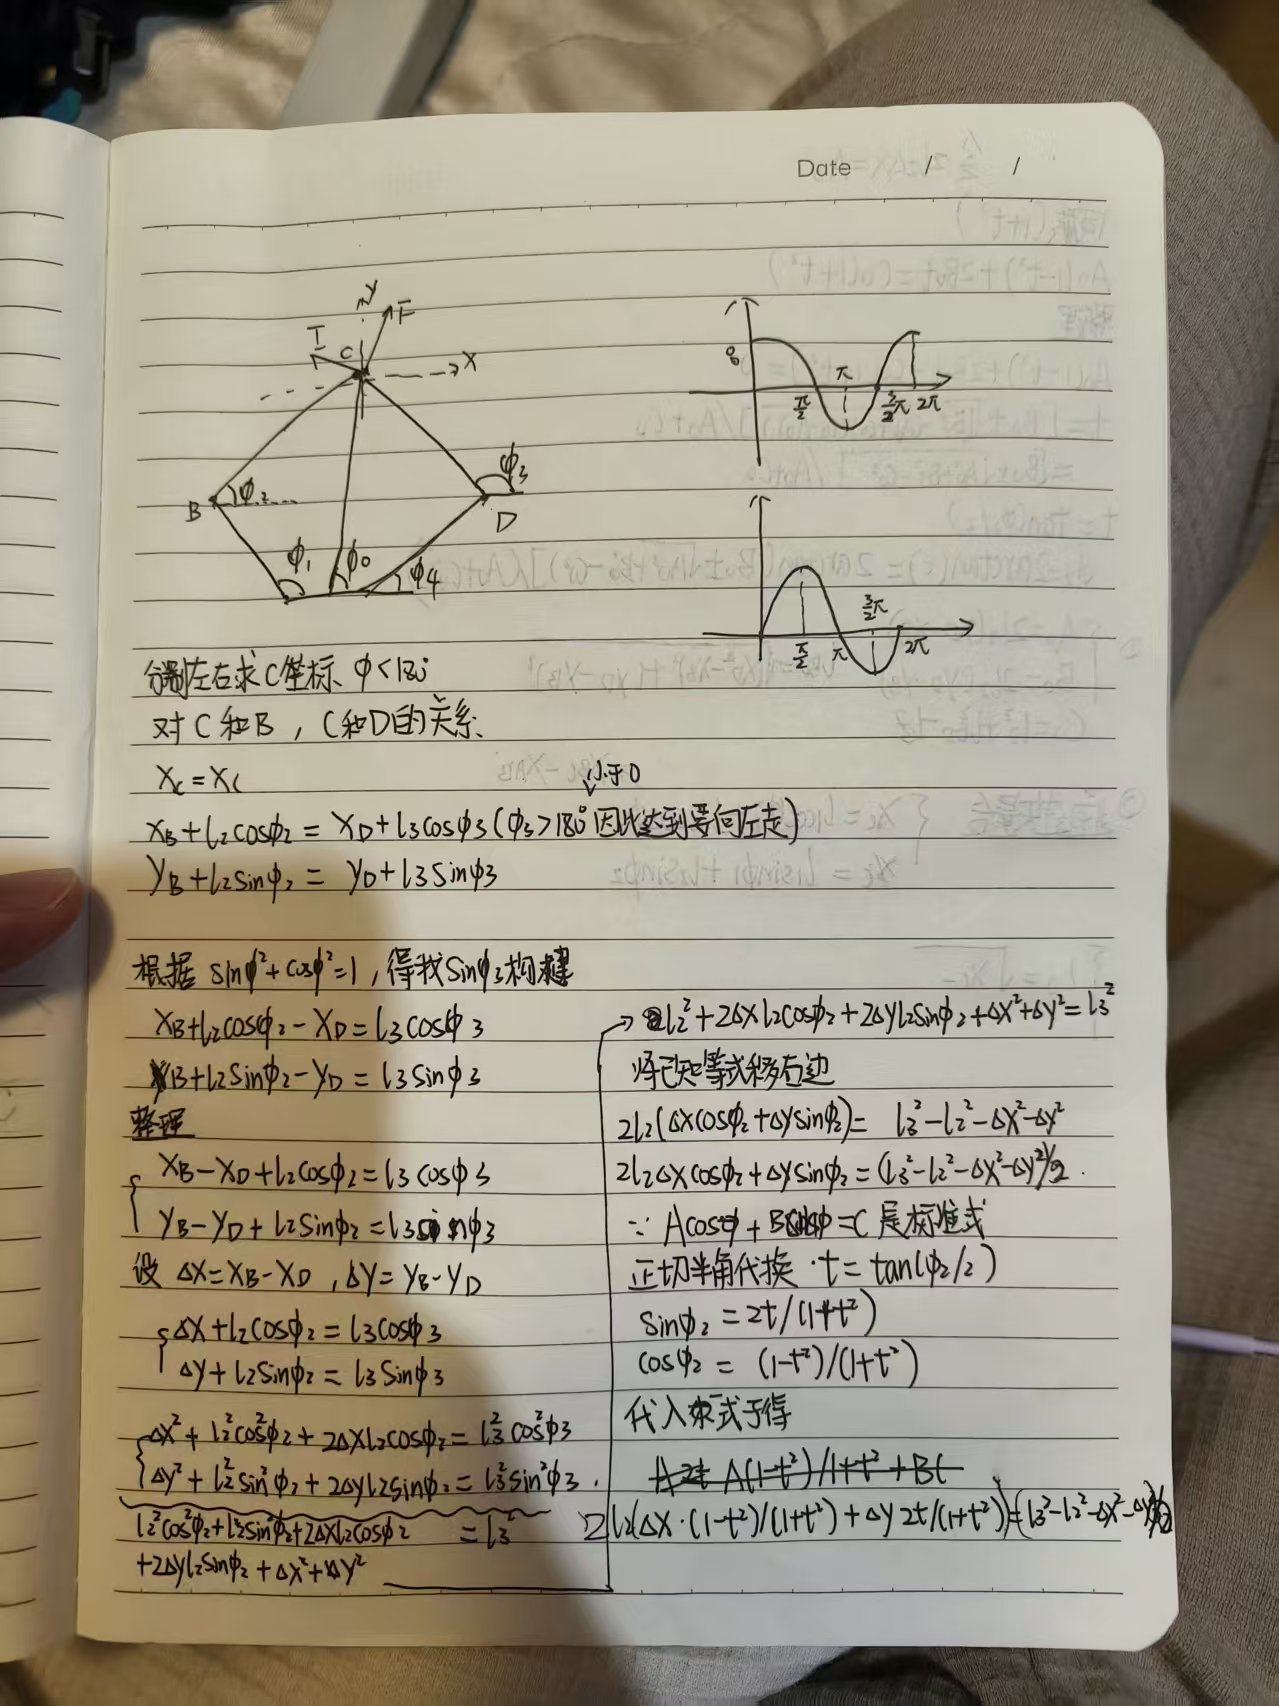 Date / /
Y
F
T
C
X
B
φ₂
φ₃
D
φ₁
φ₀
φ₄
π
π/2
3/2π
2π
3/2π
π/2
π
2π
分别左右求C坐标、φ<180°
对C和B，C和D的关系
Xc=Xc
小于0
XB+l₂cosφ₂ = XD+l₃cosφ₃(φ₃>180°因此达到等向左走)
YB+l₂sinφ₂ = YD+l₃sinφ₃
根据 sinφ²+cosφ²=1,得找sinφ₃构建
XB+l₂cosφ₂-XD=l₃cosφ3
YB+l₂sinφ₂-YD=l₃sinφ3
整理
XB-XD+l₂cosφ₂=l₃cosφ3
YB-YD+l₂sinφ₂=l₃sinφ3
设 ΔX=XB-XD,ΔY=YB-YD
ΔX+l₂cosφ₂=l₃cosφ3
ΔY+l₂sinφ₂=l₃sinφ3
ΔX²+l₂²cos²φ₂+2ΔXl₂cosφ₂=l₃²cos²φ3
ΔY²+l₂²sin²φ₂+2ΔYl₂sinφ₂=l₃²sin²φ3.
l₂²cos²φ₂+l₂²sin²φ₂+2ΔXl₂cosφ₂ =l₃²
+2ΔYl₂sinφ₂+ΔX²+ΔY²
→l₂²+2ΔXl₂cosφ₂+2ΔYl₂sinφ₂+ΔX²+ΔY²=l₃²
将已知等式移右边
2l₂(ΔXcosφ₂+ΔYsinφ₂)= l₃²-l₂²-ΔX²-ΔY²
2l₂ΔXcosφ₂+ΔYsinφ₂=(l₃²-l₂²-ΔX²-ΔY²)/2.
∵ Acosφ+Bsinφ=C 是标准式
正切半角代换·t=tan(φ₂/2)
sinφ₂=2t/(1+t²)
cosφ₂=(1-t²)/(1+t²)
代入式子得
A(1-t²)/1+t²+B(
2l₂(ΔX·(1-t²)/(1+t²)+ΔY2t/(1+t²))=(l₃²-l₂²-ΔX²-ΔY²)/2